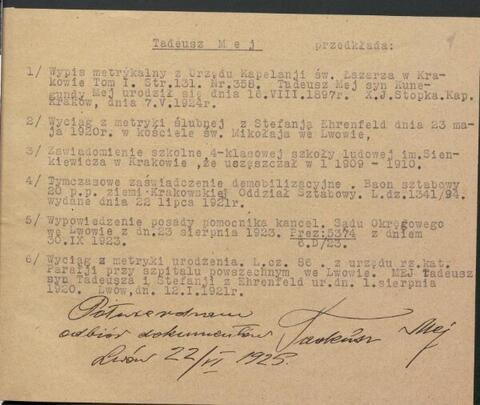 Tadeusz Mej przedkłada:
1/ Wypis metrykalny z Urzędu Kapelanji św. Łazarza w Kra-
kowie Tom I. Str.131. Nr.358. Tadeusz Mej syn Kune-
gundy Mej urodził się dnia 18.VIII.1897r. X.J.Stopka.Kap.
Kraków, dnia 7.V.1924r.
2/ Wyciąg z metryki ślubnej z Stefanją Ehrenfeld dnia 23 ma-
ja 1920r. w kościele św. Mikołaja we Lwowie,
3/ Zawiadomienie szkolne 4-klasowej szkoły ludowej im.Sien-
kiewicza w Krakowie ,że uczęszczał w l 1909 - 1910.
4/ Tymczasowe zaświadczenie demobilizacyjne . Baon sztabowy
20 p.p. ziemi Krakowskiej Oddział Sztabowy. L.dz.1341/94.
wydane dnia 22 lipca 1921r.
5/ Wypowiedzenie posady pomocnika kancel. Sądu Okręgowego
we Lwowie z dn.23 sierpnia 1923. Prez:5374 z dniem
30.IX 1923. 6.D/23.
6/ Wyciąg z metryki urodzenia. L.cz. 86 . z urzędu rz.kat.
Parafji przy szpitalu powszechnym we Lwowie. MEJ Tadeusz
syn Tadeusza i Stefanji z Ehrenfeld ur.dn. 1.sierpnia
1920. Lwów,dn. 12.I.1921r.
Potwierdzam
odbiór dokumentów Tadeusz Mej
Lwów 22/VI 1925.